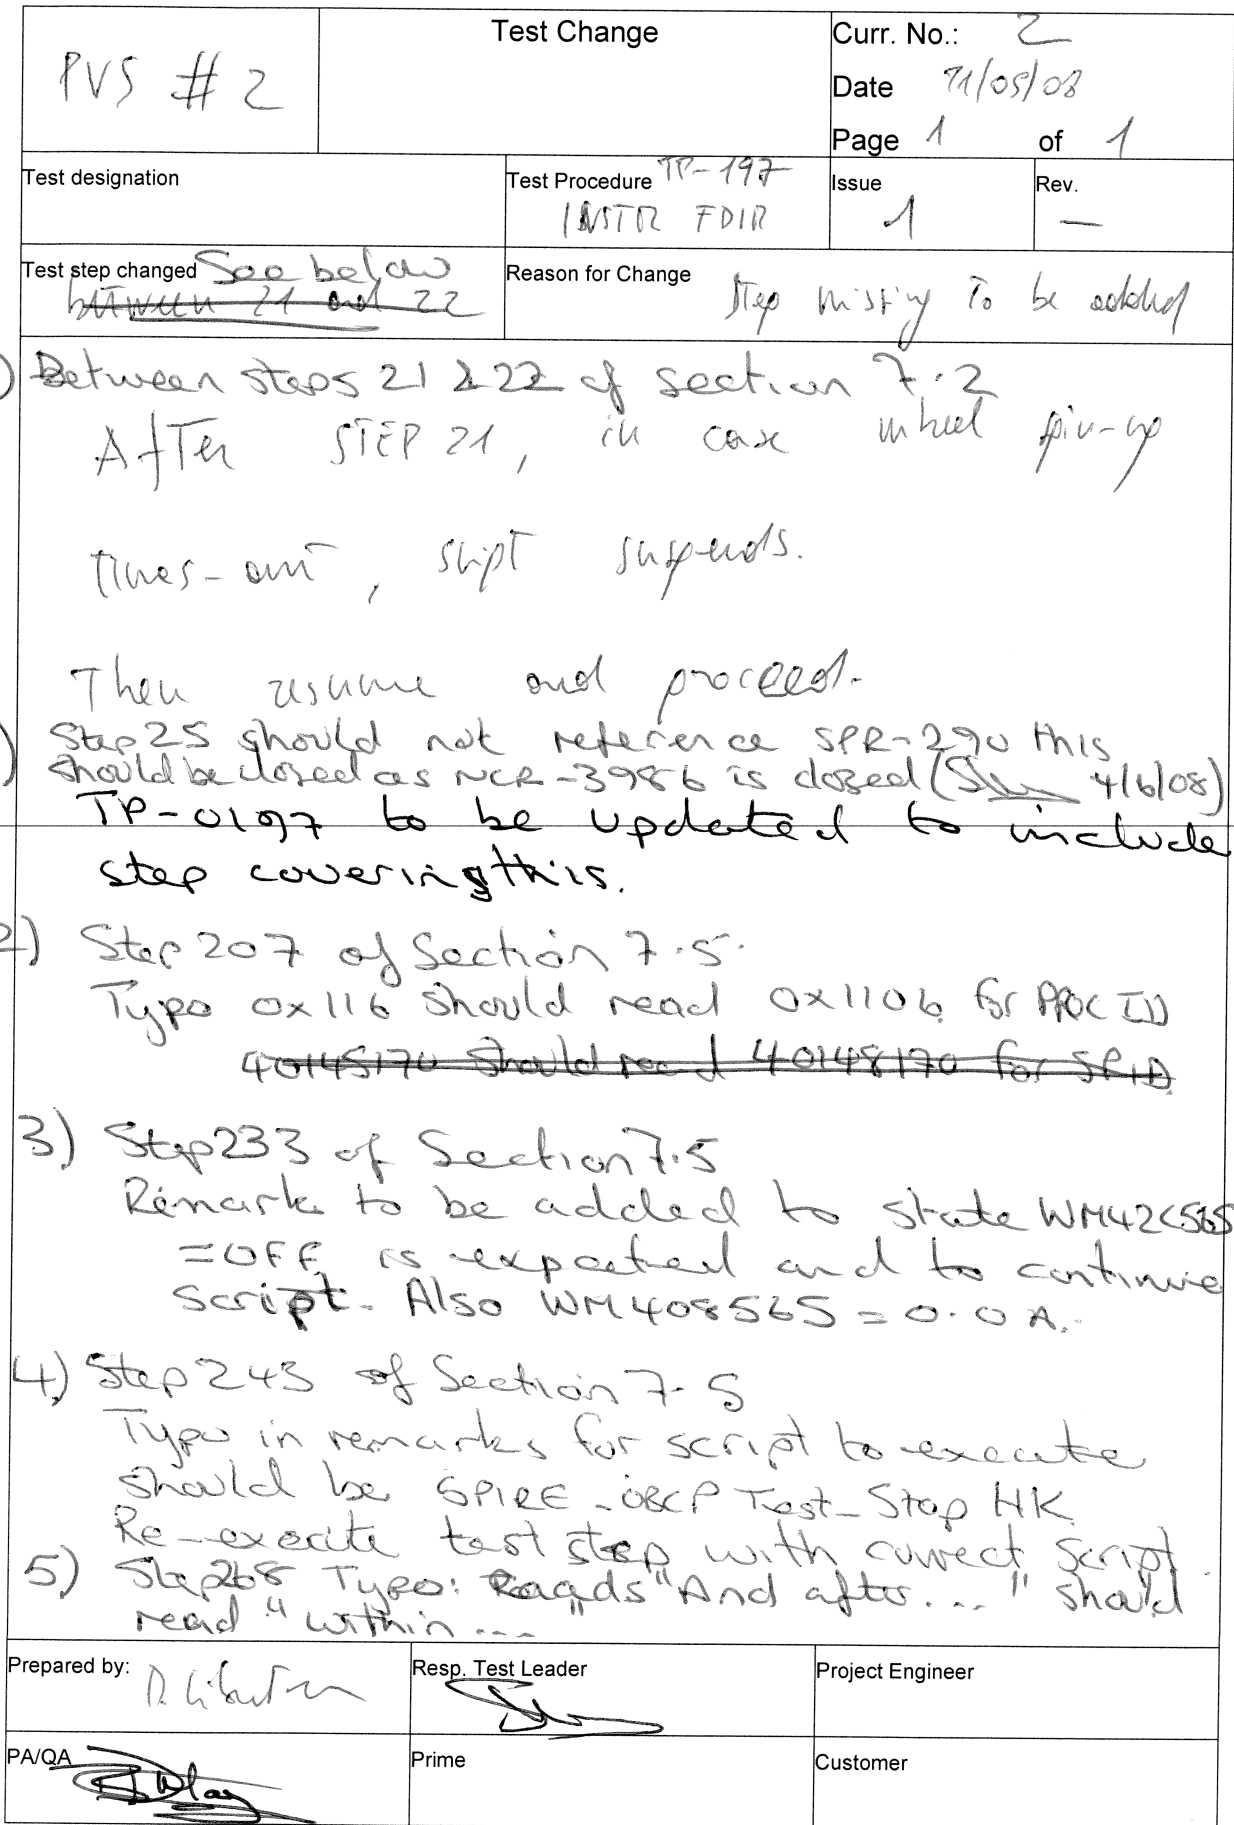 PVS # 2
Test Change
Curr. No.: 2
Date /05/08
Page 1 of 1
Test designation
Test Procedure TP-197
INSTR FDIR
Issue
1
Rev.
—
Test step changed See below
between 21 and 22
Reason for Change Step missing to be added
) Between steps 21 & 22 of section 7.2
After STEP 21, in case wheel spin-up
times-out, script suspends.
Then resume and proceed.
) Step 25 should not reference SPR-290 this
should be closed as NCR-3986 is closed ( 4/6/08)
TP-0197 to be updated to include
step covering this.
2) Step 207 of Section 7.5.
Typo 0x116 should read 0x110b for PROC ID
40145170 should read 40148170 for SPID
3) Step 233 of Section 7.5
Remark to be added to state WM42C565
=OFF is expected and to continue
script. Also WM408565 = 0.0 A.
4) Step 243 of Section 7.5
Typo in remarks for script to execute
should be SPIRE_OBCP Test_Stop HK
Re-execute test step with correct script.
5) Step 268 Typo: Reads "And after..." should
read "within..."
Prepared by:
Resp. Test Leader
Project Engineer
PA/QA
Prime
Customer